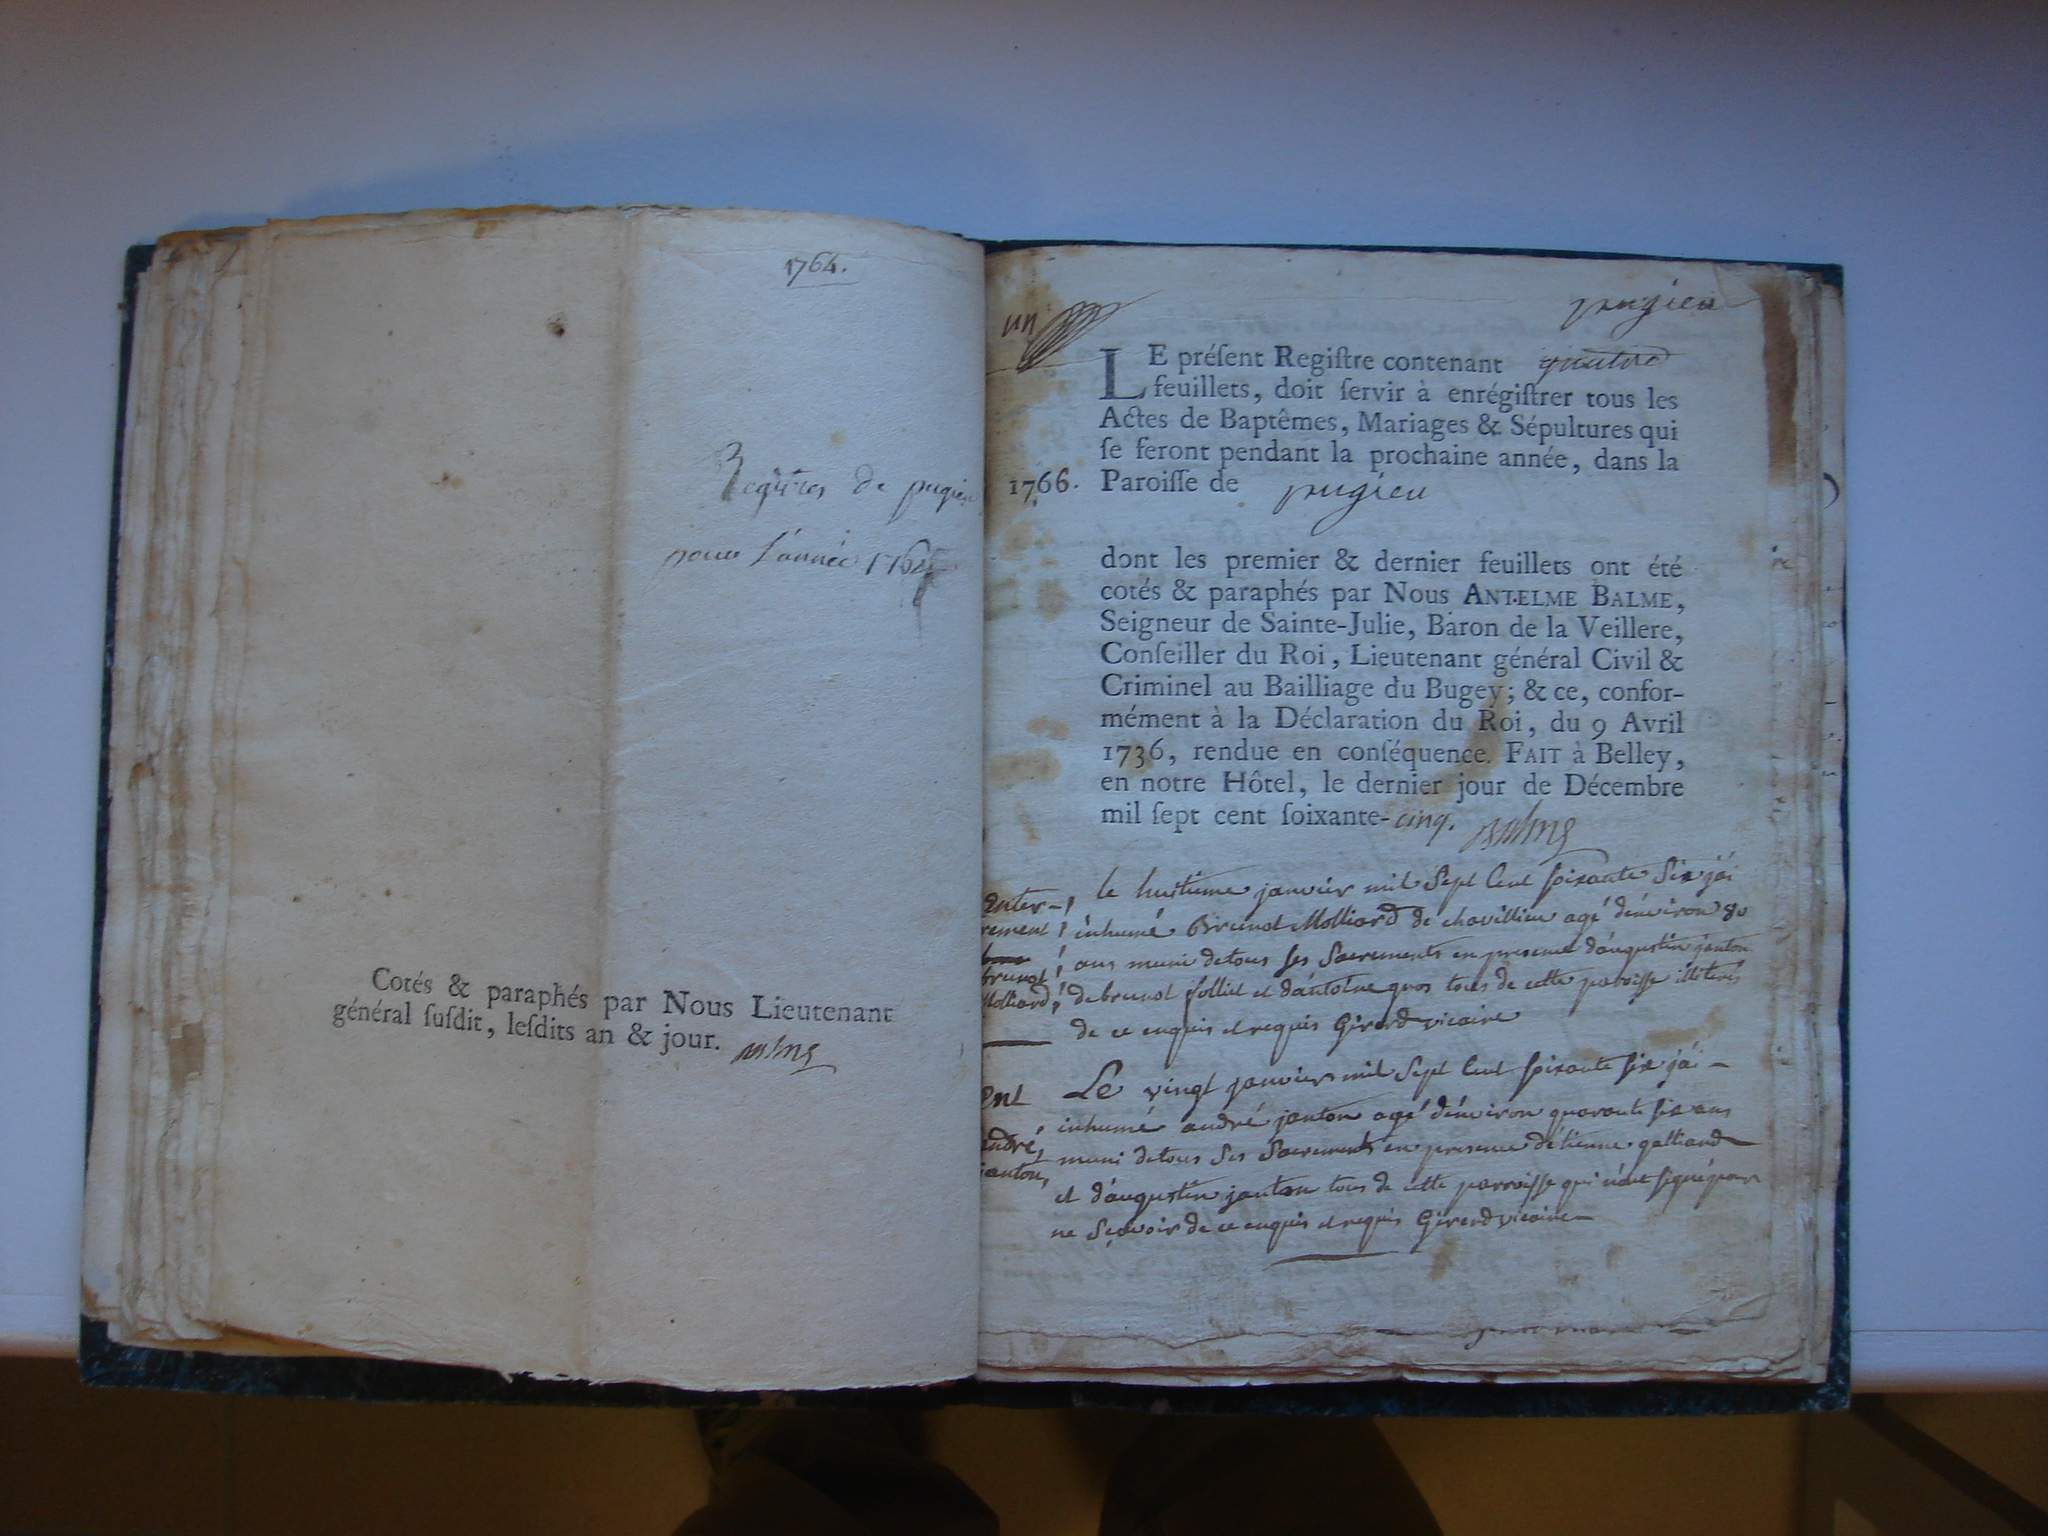 1764.
Regitres de pugieu
pour l'année 1765
Cotés & paraphés par Nous Lieutenant
général ſuſdit, leſdits an & jour. Balme
un
pugieu
LE préſent Regiſtre contenant quatre
feuillets, doit ſervir à enrégiſtrer tous les
Actes de Baptêmes, Mariages & Sépultures qui
ſe feront pendant la prochaine année, dans la
1766. Paroiſſe de pugieu
dont les premier & dernier feuillets ont été
cotés & paraphés par Nous ANTELME BALME,
Seigneur de Sainte-Julie, Baron de la Veillere,
Conſeiller du Roi, Lieutenant général Civil &
Criminel au Bailliage du Bugey; & ce, confor-
mément à la Déclaration du Roi, du 9 Avril
1736, rendue en conſéquence. FAIT à Belley,
en notre Hôtel, le dernier jour de Décembre
mil ſept cent ſoixante-cinq. Balme
enter-
rement
brunot
Molliard
le huitieme janvier mil Sept Cent soixante Six j'ai
inhumé Brunot Molliard de chavillieu agé d'énviron 80
ans muni de tous ses Sacrements en presence d'augustin janton
de brunot folliet et d'antoine gros tous de cette paroisse illiterés
de ce enquis et requis Girerd vicaire
ent
andré
janton
Le vingt janvier mil Sept Cent soixante six j'ai -
inhumé andré janton agé d'énviron quarante six ans
muni de tous Ses Sacrements en presence d'étienne galliard
et d'augustin janton tous de cette parroisse qui n'ont signé pour
ne Sçavoir de ce enquis et requis Girerd vicaire